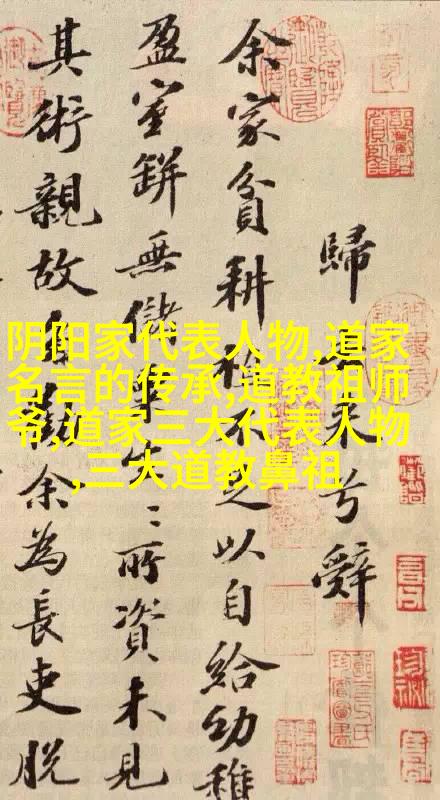 歸去来兮辭
余家貧耕植不足以自給幼稚
盈室缾無儲粟生〻所資未見
其術親故多勸余為長吏脱
阴阳家代表人物,道家
名言的传承,道教祖师
爷,道家三大代表人物
,三大道教鼻祖